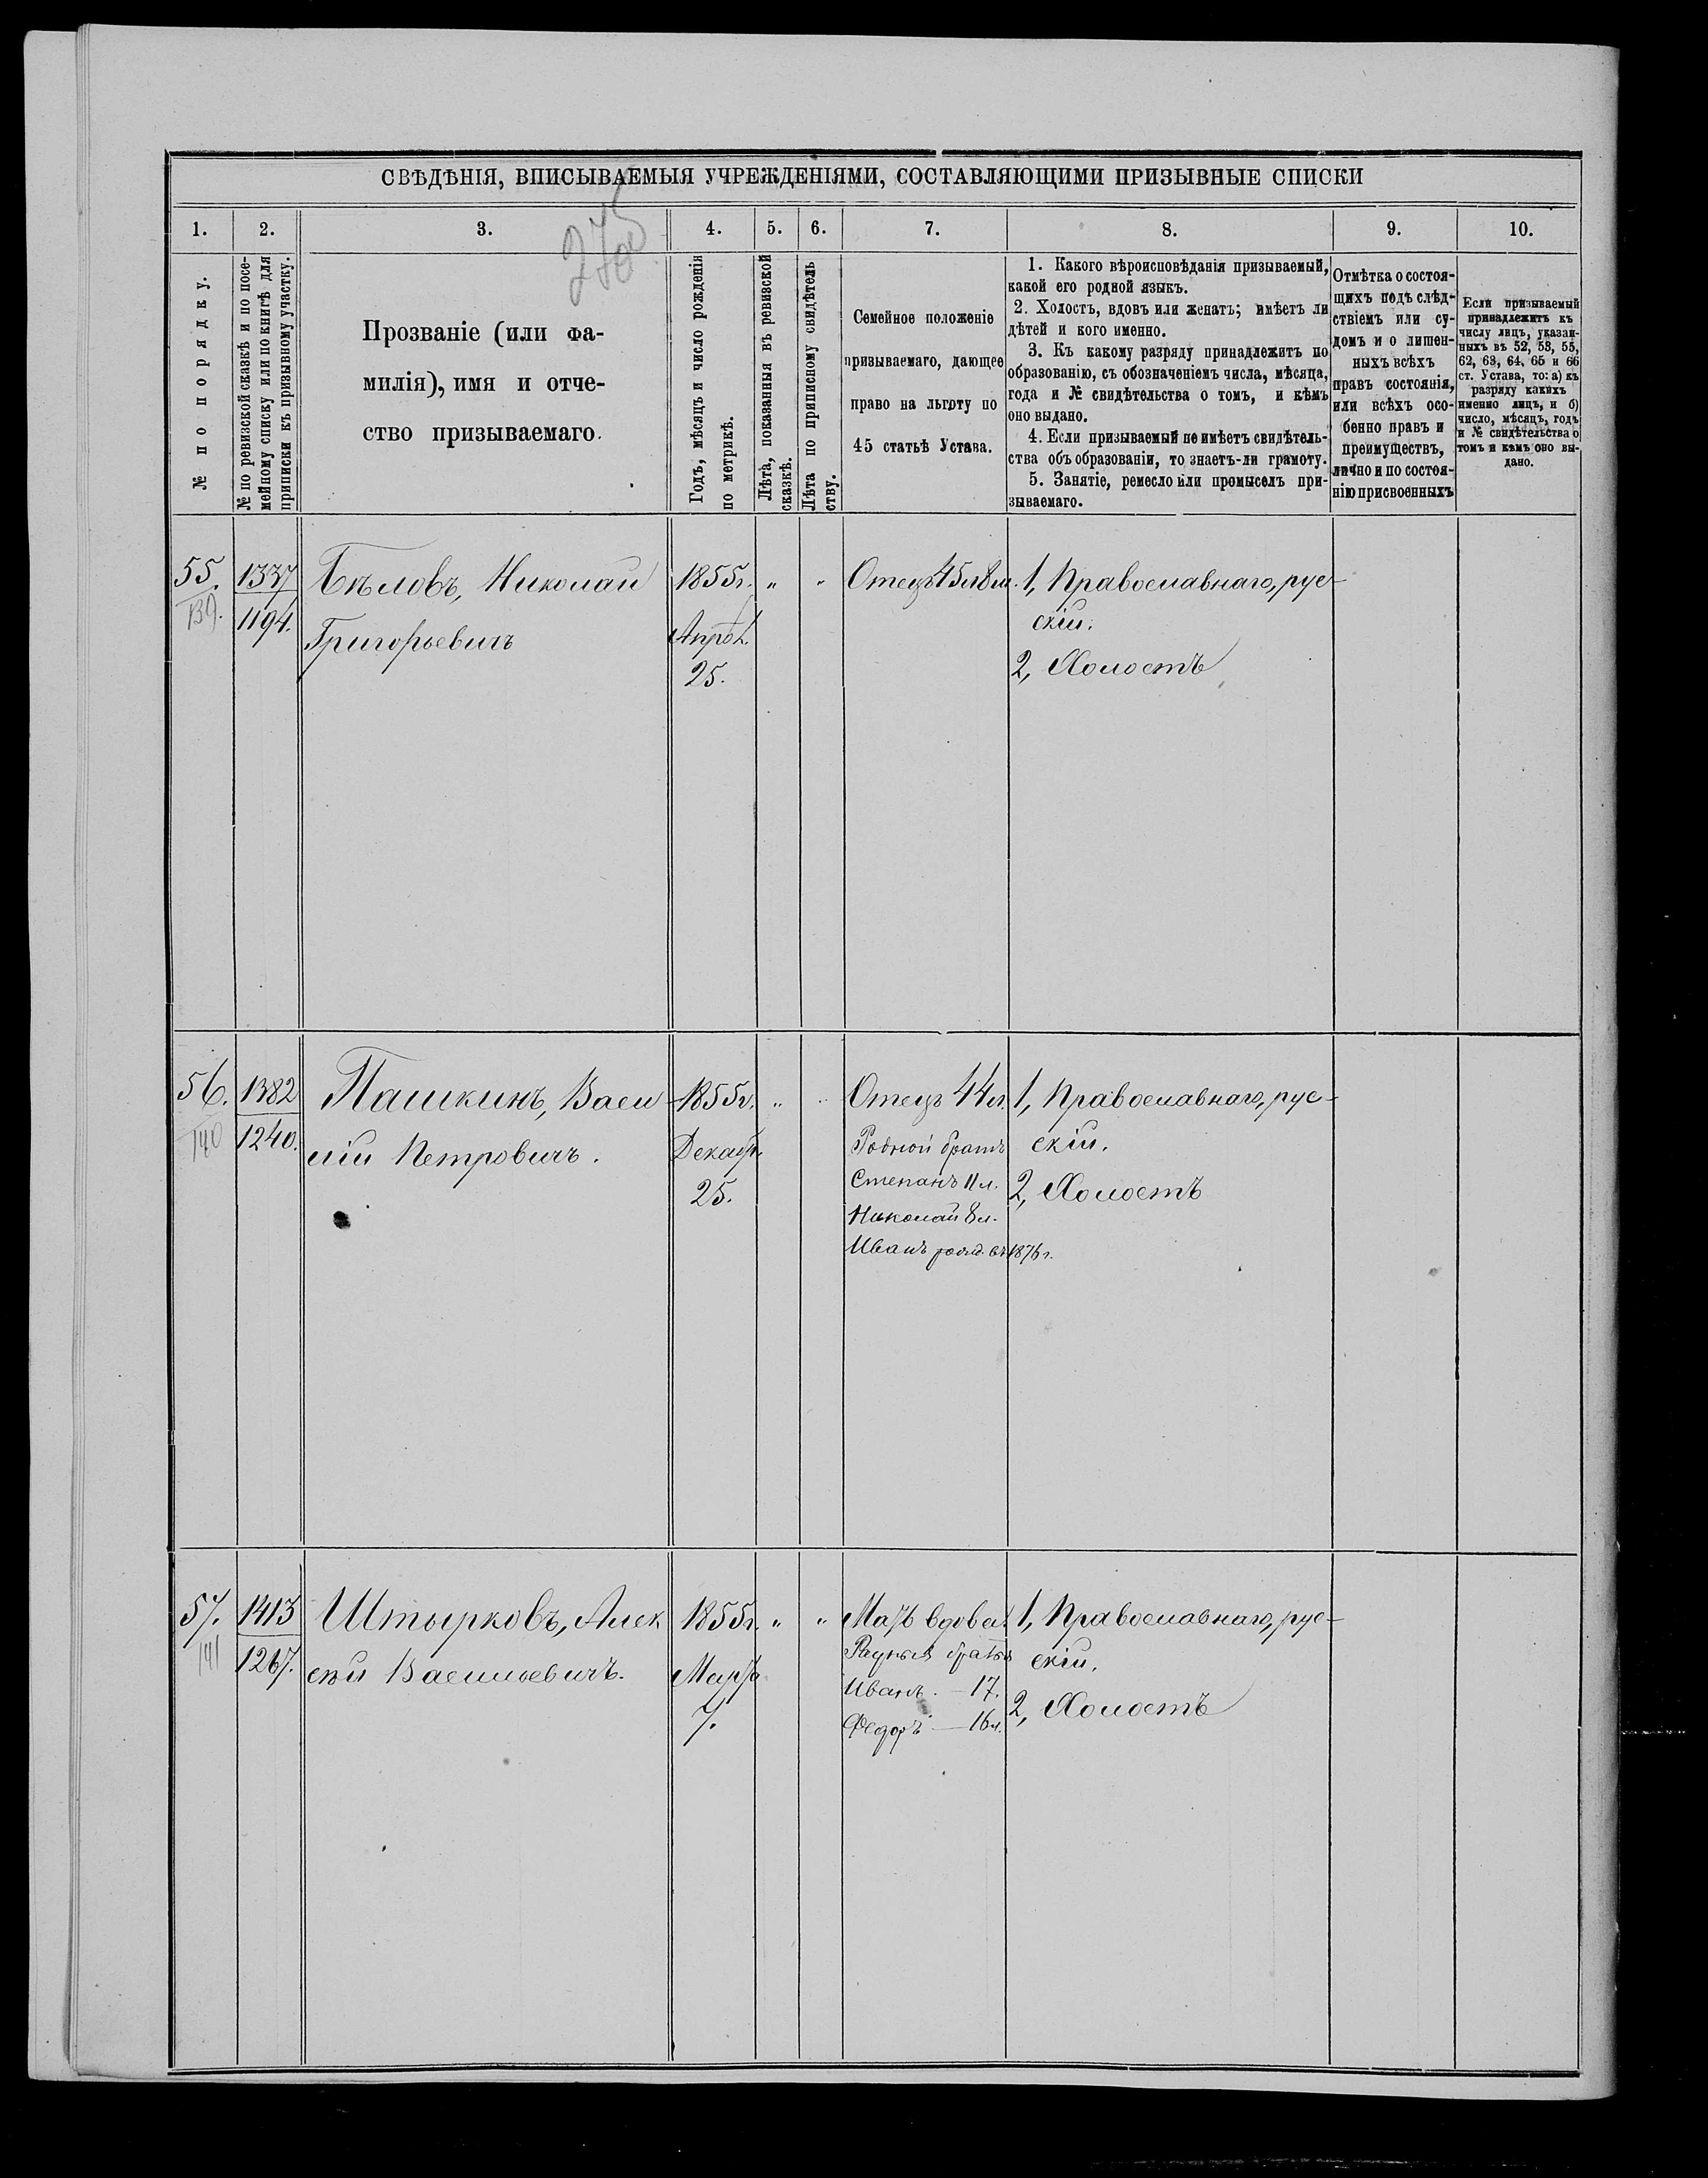 СВѢДѢНІЯ, ВПИСЫВАЕМЫЯ УЧРЕЖДЕНІЯМИ, СОСТАВЛЯЮЩИМИ ПРИЗЫВНЫЕ СПИСКИ
1. 2. 3. 4. 5. 6. 7. 8. 9. 10.
№ по порядку.
№ по ревизской сказкѣ и по посе-
мейному списку или по книгѣ для
приписки къ призывному участку.
Прозваніе (или фа-
милія), имя и отче-
ство призываемаго.
Годъ, мѣсяцъ и число рожденія
по метрикѣ.
Лѣта, показанныя въ ревизской
сказкѣ.
Лѣта по приписному свидѣтель
ству.
Семейное положеніе
призываемаго, дающее
право на льготу по
45 статьѣ Устава.
1. Какого вѣроисповѣданія призываемый,
какой его родной языкъ.
2. Холостъ, вдовъ или женатъ; имѣетъ ли
дѣтей и кого именно.
3. Къ какому разряду принадлежитъ по
образованію, съ обозначеніемъ числа, мѣсяца,
года и № свидѣтельства о томъ, и кѣмъ
оно выдано.
4. Если призываемый не имѣетъ свидѣтель-
ства объ образованіи, то знаетъ-ли грамоту.
5. Занятіе, ремесло или промыселъ при-
зываемаго.
Отмѣтка о состоя-
щихъ подъ слѣд-
ствіемъ или су-
домъ и о лишен-
ныхъ всѣхъ
правъ состоянія,
или всѣхъ осо-
бенно правъ и
преимуществъ,
лично и по состоя-
нію присвоенныхъ
Если призываемый
принадлежитъ къ
числу лицъ, указан-
ныхъ въ 52, 53, 55,
62, 63, 64, 65 и 66
ст. Устава, то: а) къ
разряду какихъ
именно лицъ, и б)
число, мѣсяцъ, годъ
и № свидѣтельства о
томъ и кѣмъ оно вы-
дано.
55.
139.
1337
1194.
Бѣловъ, Николай
Григорьевичъ
1855г.
25.
" "
Отецъ 45л 8м.
1, Православнаго, рус-
скій.
2, Холостъ
56.
140
1382
1240.
Пашкинъ, Васи
лій Петровичъ.
1855г.
Декабр.
25.
" "
Отецъ 44л.
Родной братъ
Степанъ 11 л.
Николай 8 л.
Иванъ рожд. въ 1876 г.
1, Православнаго, рус-
скій.
2, Холостъ
57.
141
1413
1267.
Штырковъ, Алек
сѣй Васильевичъ.
1855г.
Марта
7.
" "
Мать вдова
братья
Иванъ — 17.
Федоръ — 16 л.
1, Православнаго, рус-
скій.
2, Холостъ